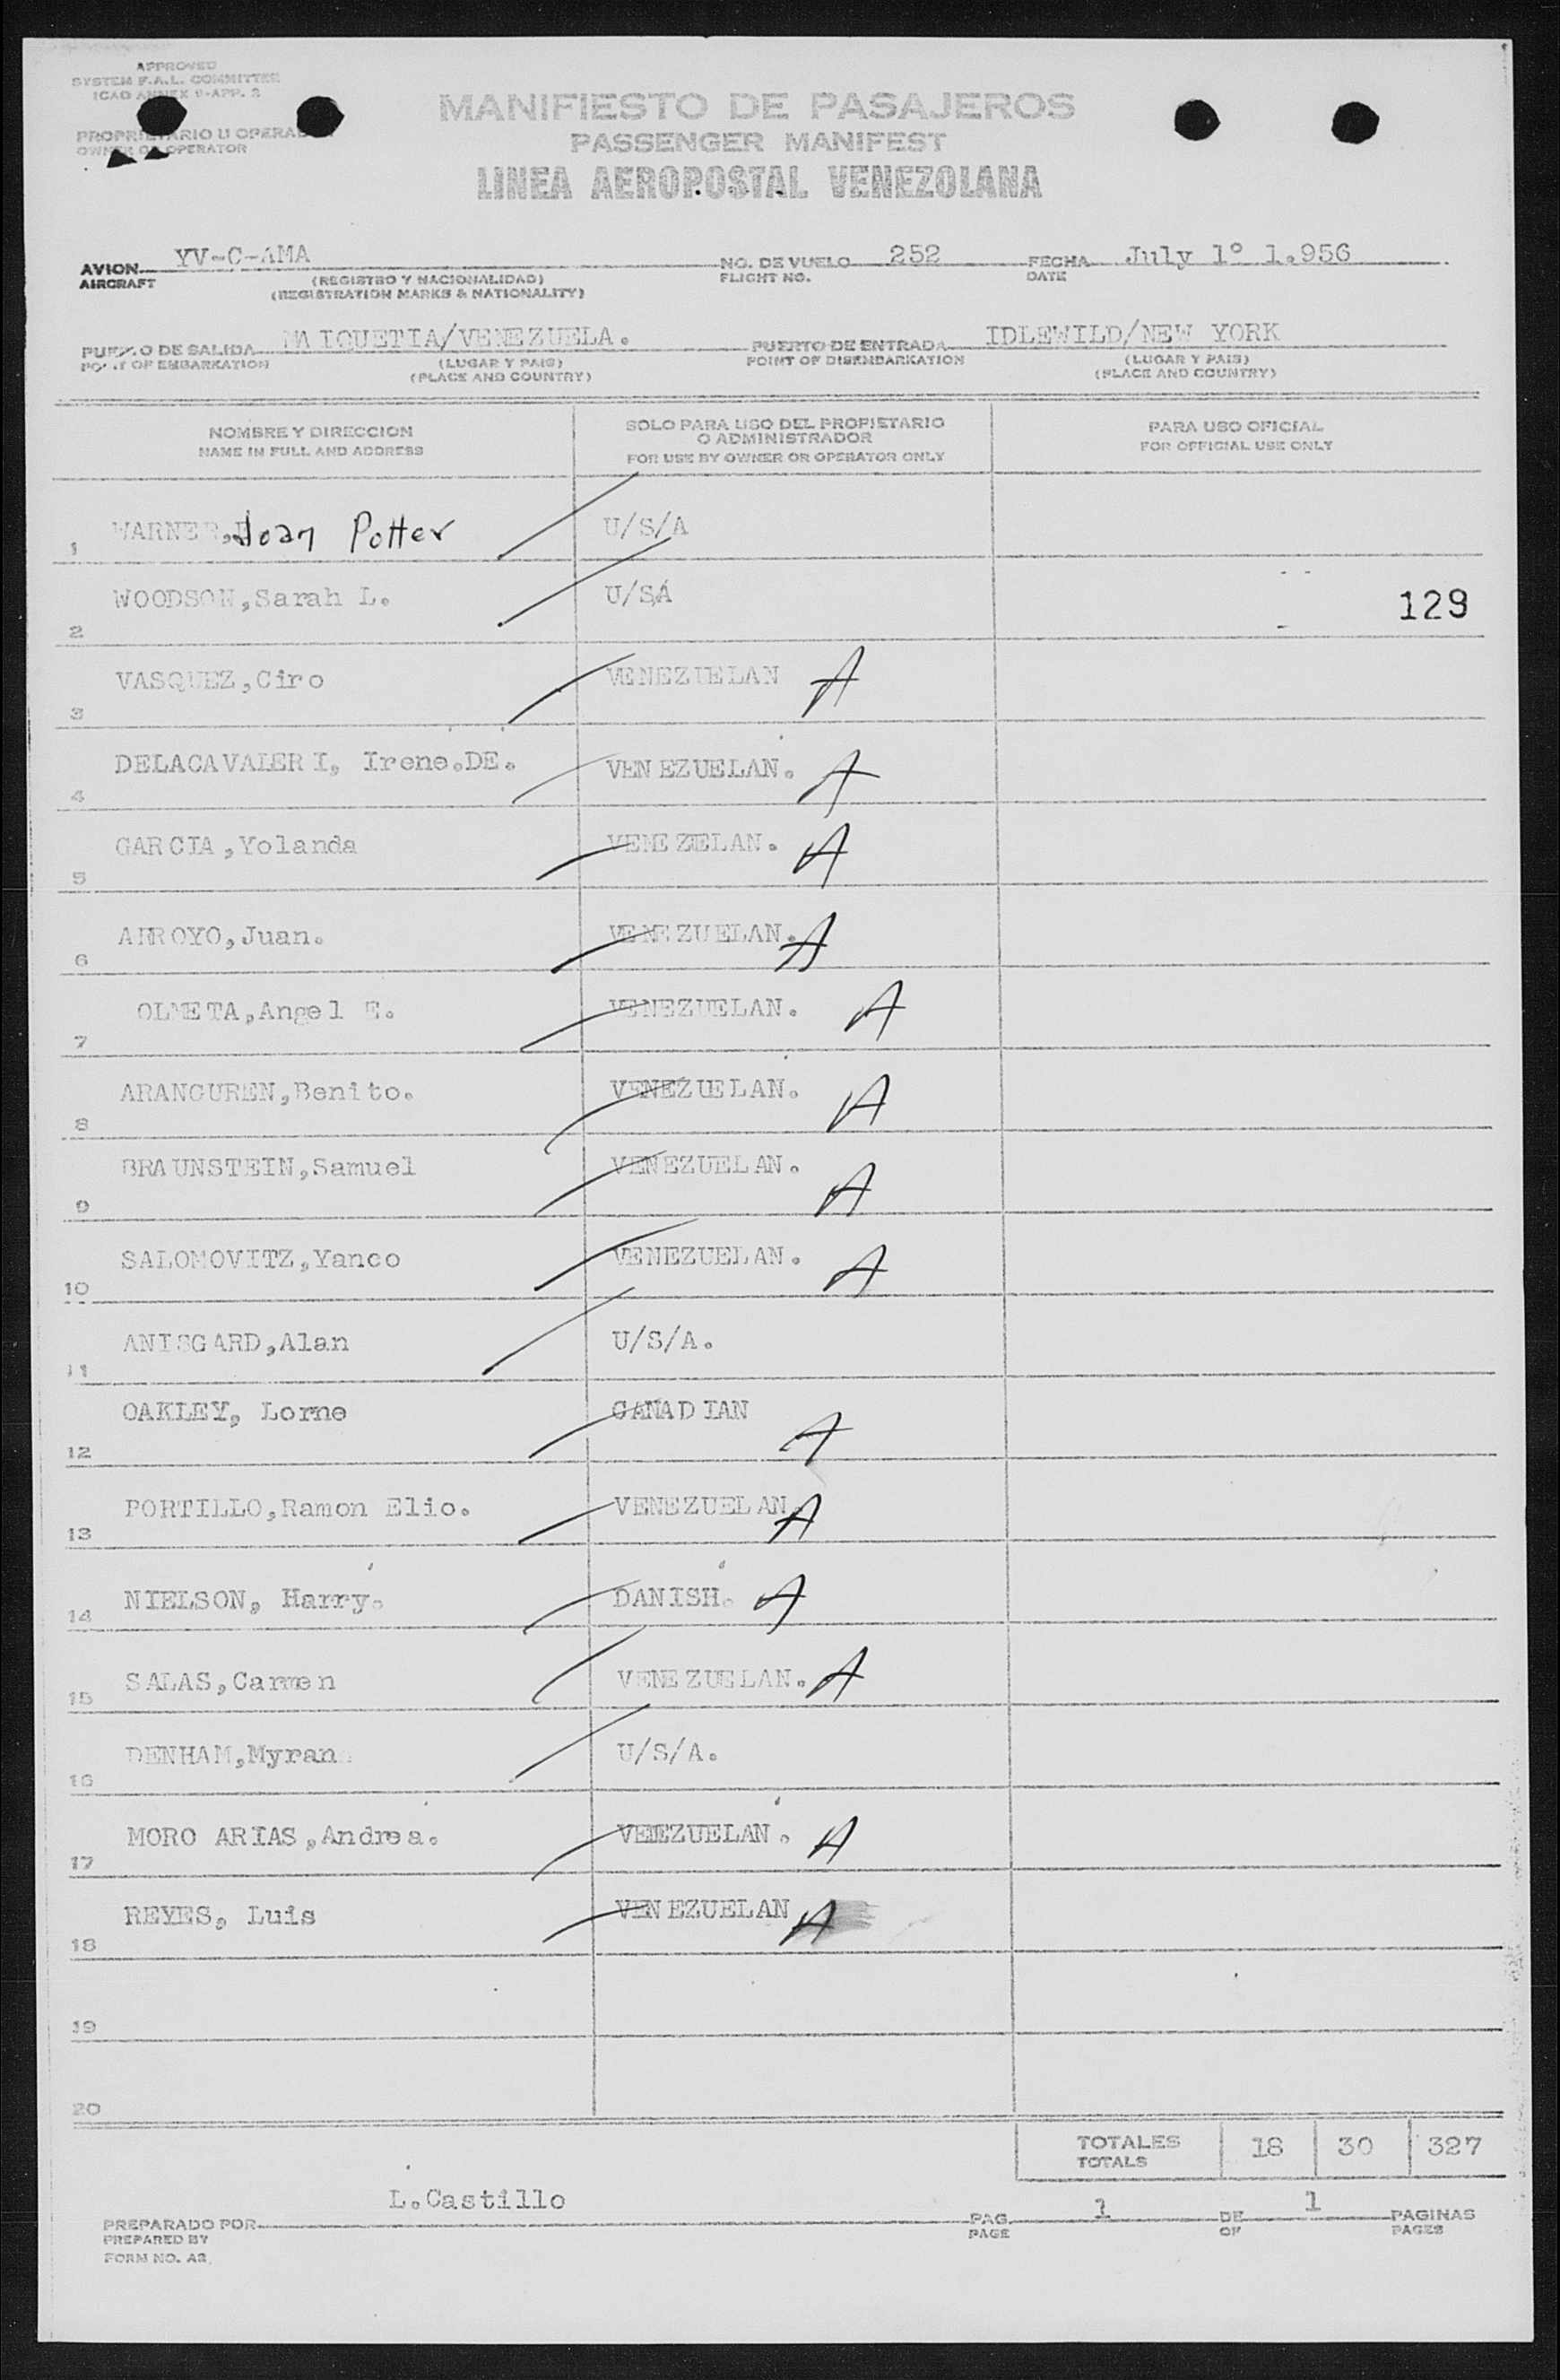 APPROVED
SYSTEM F.A.L. COMMITTEE
ICAO ANNEX 9-APP. 2
PROPRIETARIO U OPERADOR
OWNER OR OPERATOR
MANIFIESTO DE PASAJEROS
PASSENGER MANIFEST
LINEA AEROPOSTAL VENEZOLANA
AVION YV-C-AMA NO. DE VUELO 252 FECHA July 1º 1.956
AIRCRAFT (REGISTRO Y NACIONALIDAD) FLIGHT NO. DATE
(REGISTRATION MARKS & NATIONALITY)
PUERTO DE SALIDA MAIQUETIA/VENEZUELA. PUERTO DE ENTRADA IDLEWILD/NEW YORK
POINT OF EMBARKATION (LUGAR Y PAIS) POINT OF DISEMBARKATION (LUGAR Y PAIS)
(PLACE AND COUNTRY) (PLACE AND COUNTRY)
NOMBRE Y DIRECCION SOLO PARA USO DEL PROPIETARIO PARA USO OFICIAL
O ADMINISTRADOR
NAME IN FULL AND ADDRESS FOR USE BY OWNER OR OPERATOR ONLY FOR OFFICIAL USE ONLY
1 WARNER, Joan Potter U/S/A
2 WOODSON,Sarah L. U/SA 129
3 VASQUEZ,Ciro VENEZUELAN A
4 DELACAVALERI, Irene.DE. VENEZUELAN. A
5 GARCIA,Yolanda VENEZUELAN. A
6 ARROYO,Juan. VENEZUELAN. A
7 OLMETA,Angel E. VENEZUELAN. A
8 ARANGUREN,Benito. VENEZUELAN. A
9 BRAUNSTEIN,Samuel VENEZUELAN. A
10 SALOMOVITZ,Yanco VENEZUELAN. A
11 ANISGARD,Alan U/S/A.
12 OAKLEY, Lorne CANADIAN A
13 PORTILLO,Ramon Elio. VENEZUELAN. A
14 NIELSON, Harry. DANISH. A
15 SALAS,Carmen VENEZUELAN. A
16 DENHAM,Myran U/S/A.
17 MORO ARIAS,Andrea. VENEZUELAN. A
18 REYES, Luis VENEZUELAN A
19
20
TOTALES 18 30 327
TOTALS
L.Castillo
PREPARADO POR PAG. 1 DE 1 PAGINAS
PREPARED BY PAGE OF PAGES
FORM NO. A2